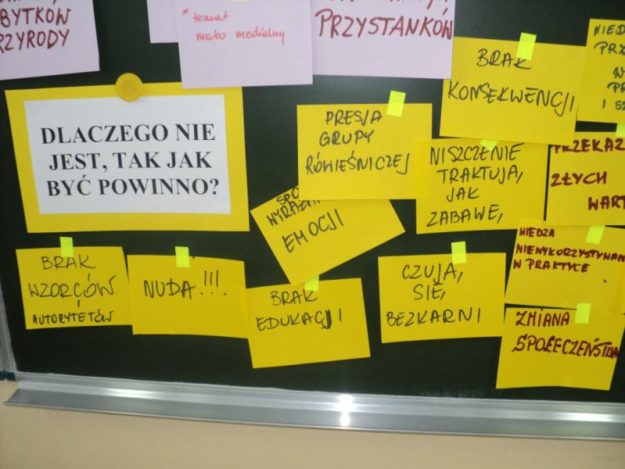 BYTKÓW
RZYRODY
* temat
mało medialny
PRZYSTANKÓW
DLACZEGO NIE
JEST, TAK JAK
BYĆ POWINNO?
BRAK
KONSEKWENCJI
PRESJA
GRUPY
RÓWIEŚNICZEJ
NISZCZENIE
TRAKTUJĄ,
JAK
ZABAWĘ,
PRZEKAZ
ZŁYCH
WART
WYRAŻANIA
EMOCJI
BRAK
WZORCÓW
I
AUTORYTETÓW
NUDA!!!
BRAK
EDUKACJI
CZUJĄ,
SIĘ,
BEZKARNI
WIEDZA
NIEWYKORZYSTYWAN
W PRAKTYCE
ZMIANA
SPOŁECZEŃSTWA